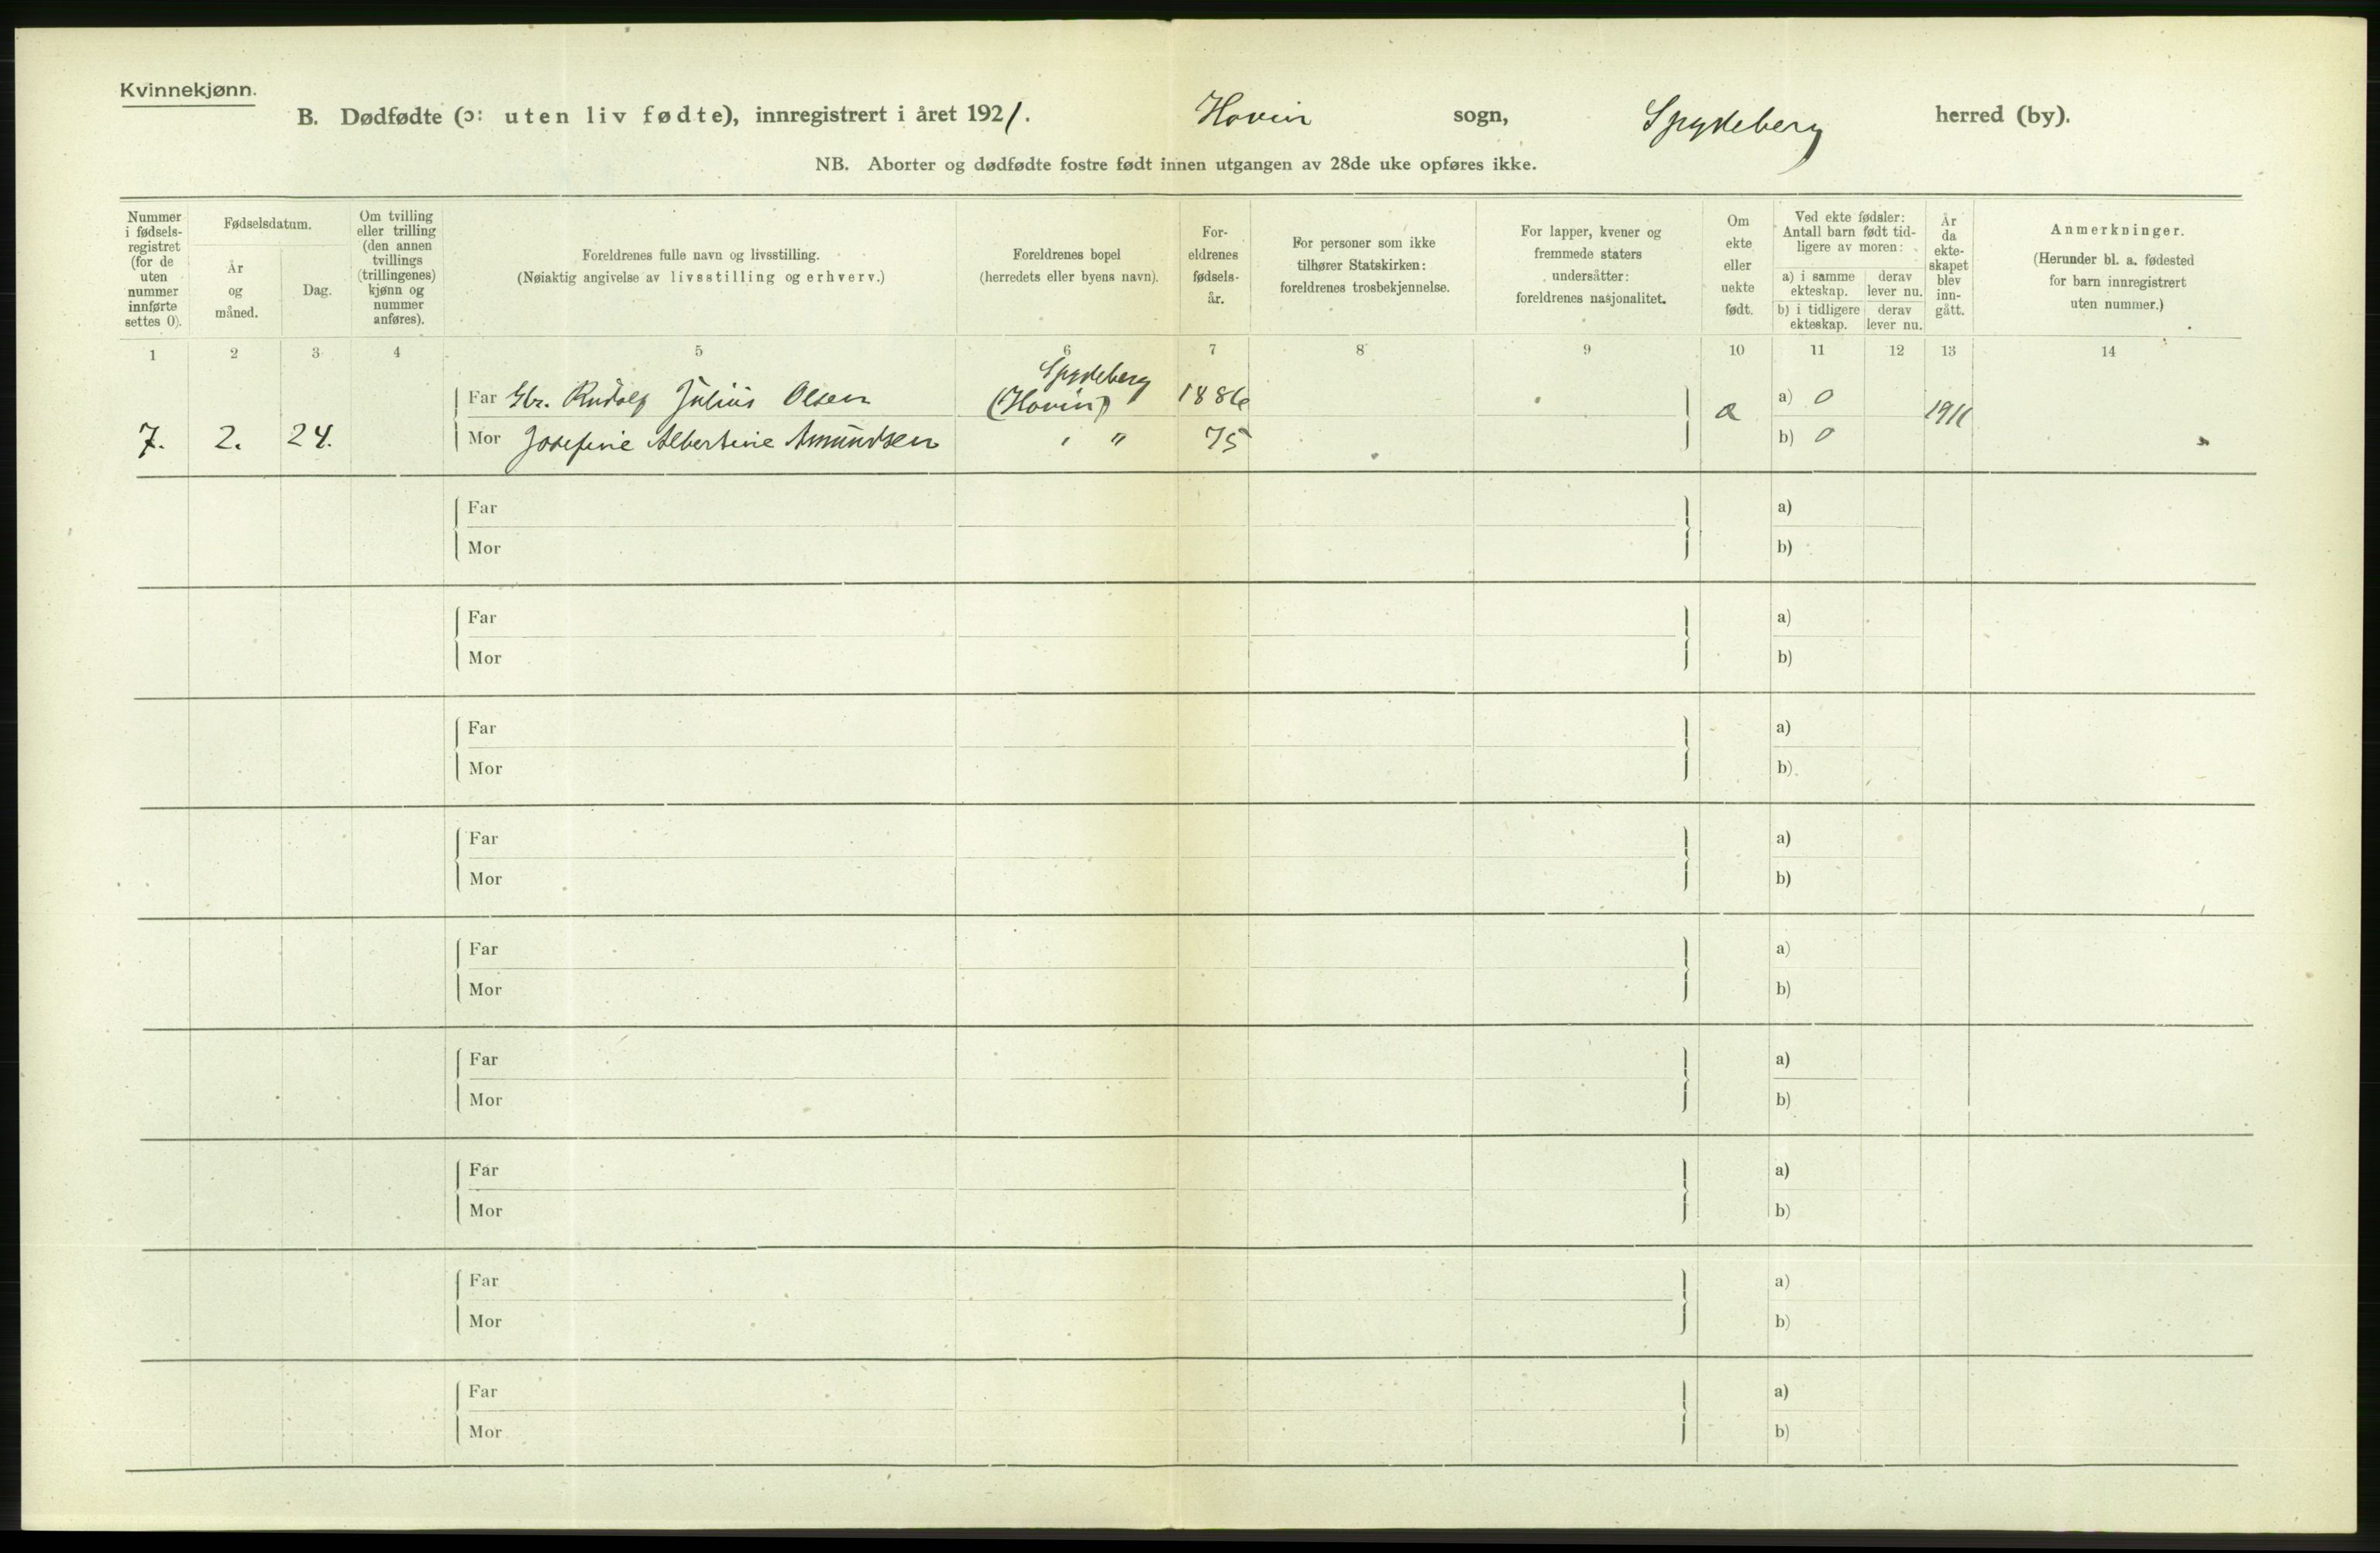 Kvinnekjønn.
B. Dødfødte (ɔ: uten liv fødte), innregistrert i året 1921. Hovin sogn, Spydeberg herred (by).
NB. Aborter og dødfødte fostre født innen utgangen av 28de uke opføres ikke.
Nummer i fødsels-registret (for de uten nummer innførte settes 0).
Fødselsdatum.
År og måned.
Dag.
Om tvilling eller trilling (den annen tvillings (trillingenes) kjønn og nummer anføres).
Foreldrenes fulle navn og livsstilling.
(Nøiaktig angivelse av livsstilling og erhverv.)
Foreldrenes bopel
(herredets eller byens navn).
For-eldrenes fødsels-år.
For personer som ikke tilhører Statskirken: foreldrenes trosbekjennelse.
For lapper, kvener og fremmede staters undersåtter: foreldrenes nasjonalitet.
Om ekte eller uekte født.
Ved ekte fødsler: Antall barn født tid-ligere av moren:
a) i samme ekteskap.
derav lever nu.
b) i tidligere ekteskap.
derav lever nu.
År da ekte-skapet blev inn-gått.
Anmerkninger.
(Herunder bl. a. fødested for barn innregistrert uten nummer.)
1 2 3 4 5 6 7 8 9 10 11 12 13 14
Spydeberg
Far Gbr. Rudolf Julius Olsen (Hovin) 1886 a) 0
7. 2. 24. Mor Josefine Albertine Amundsen " " 75 b) 0
1911
Far a)
Mor b)
Far a)
Mor b)
Far a)
Mor b)
Far a)
Mor b)
Far a)
Mor b)
Far a)
Mor b)
Far a)
Mor b)
Far a)
Mor b)
Far a)
Mor b)